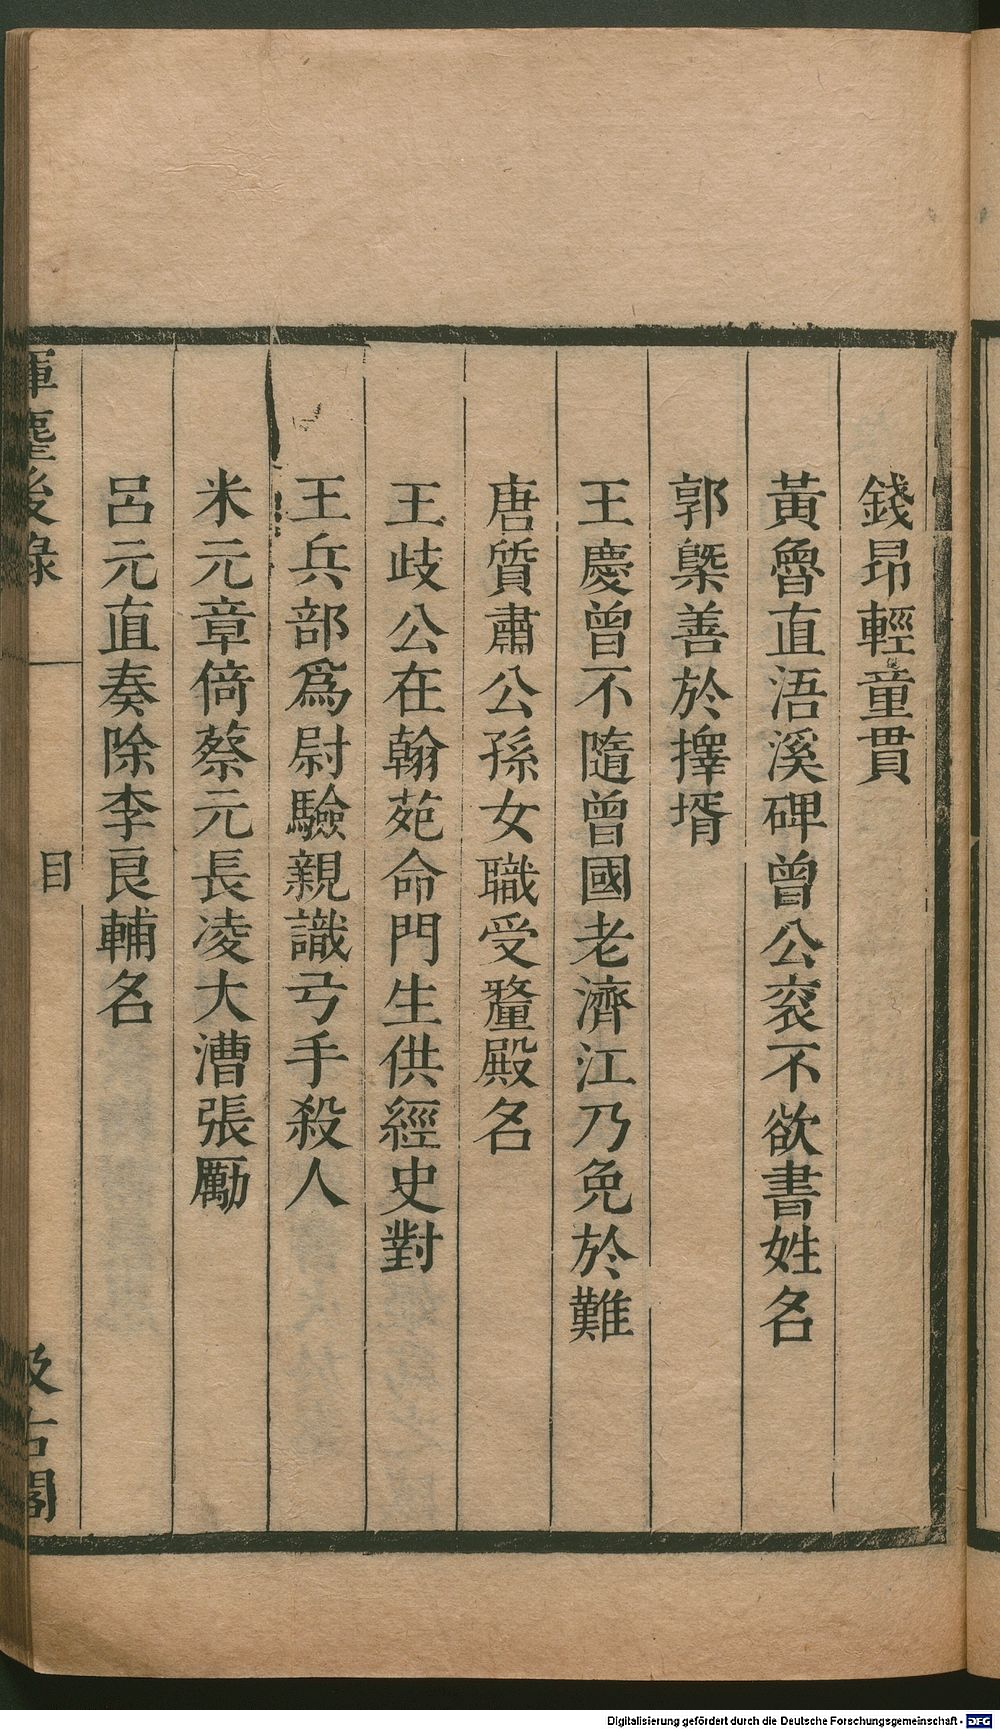 錢昂輕童貫
黃魯直浯溪碑曾公衮不欲書姓名
郭槩善於擇壻
王慶曾不隨曾國老濟江乃免於難
唐質肅公孫女職受釐殿名
王歧公在翰苑命門生供經史對
王兵部爲尉驗親識弓手殺人
米元章倚蔡元長凌大漕張勵
呂元直奏除李良輔名
揮麈後錄
目
汲古閣
Digitalisierung gefördert durch die Deutsche Forschungsgemeinschaft - DFG